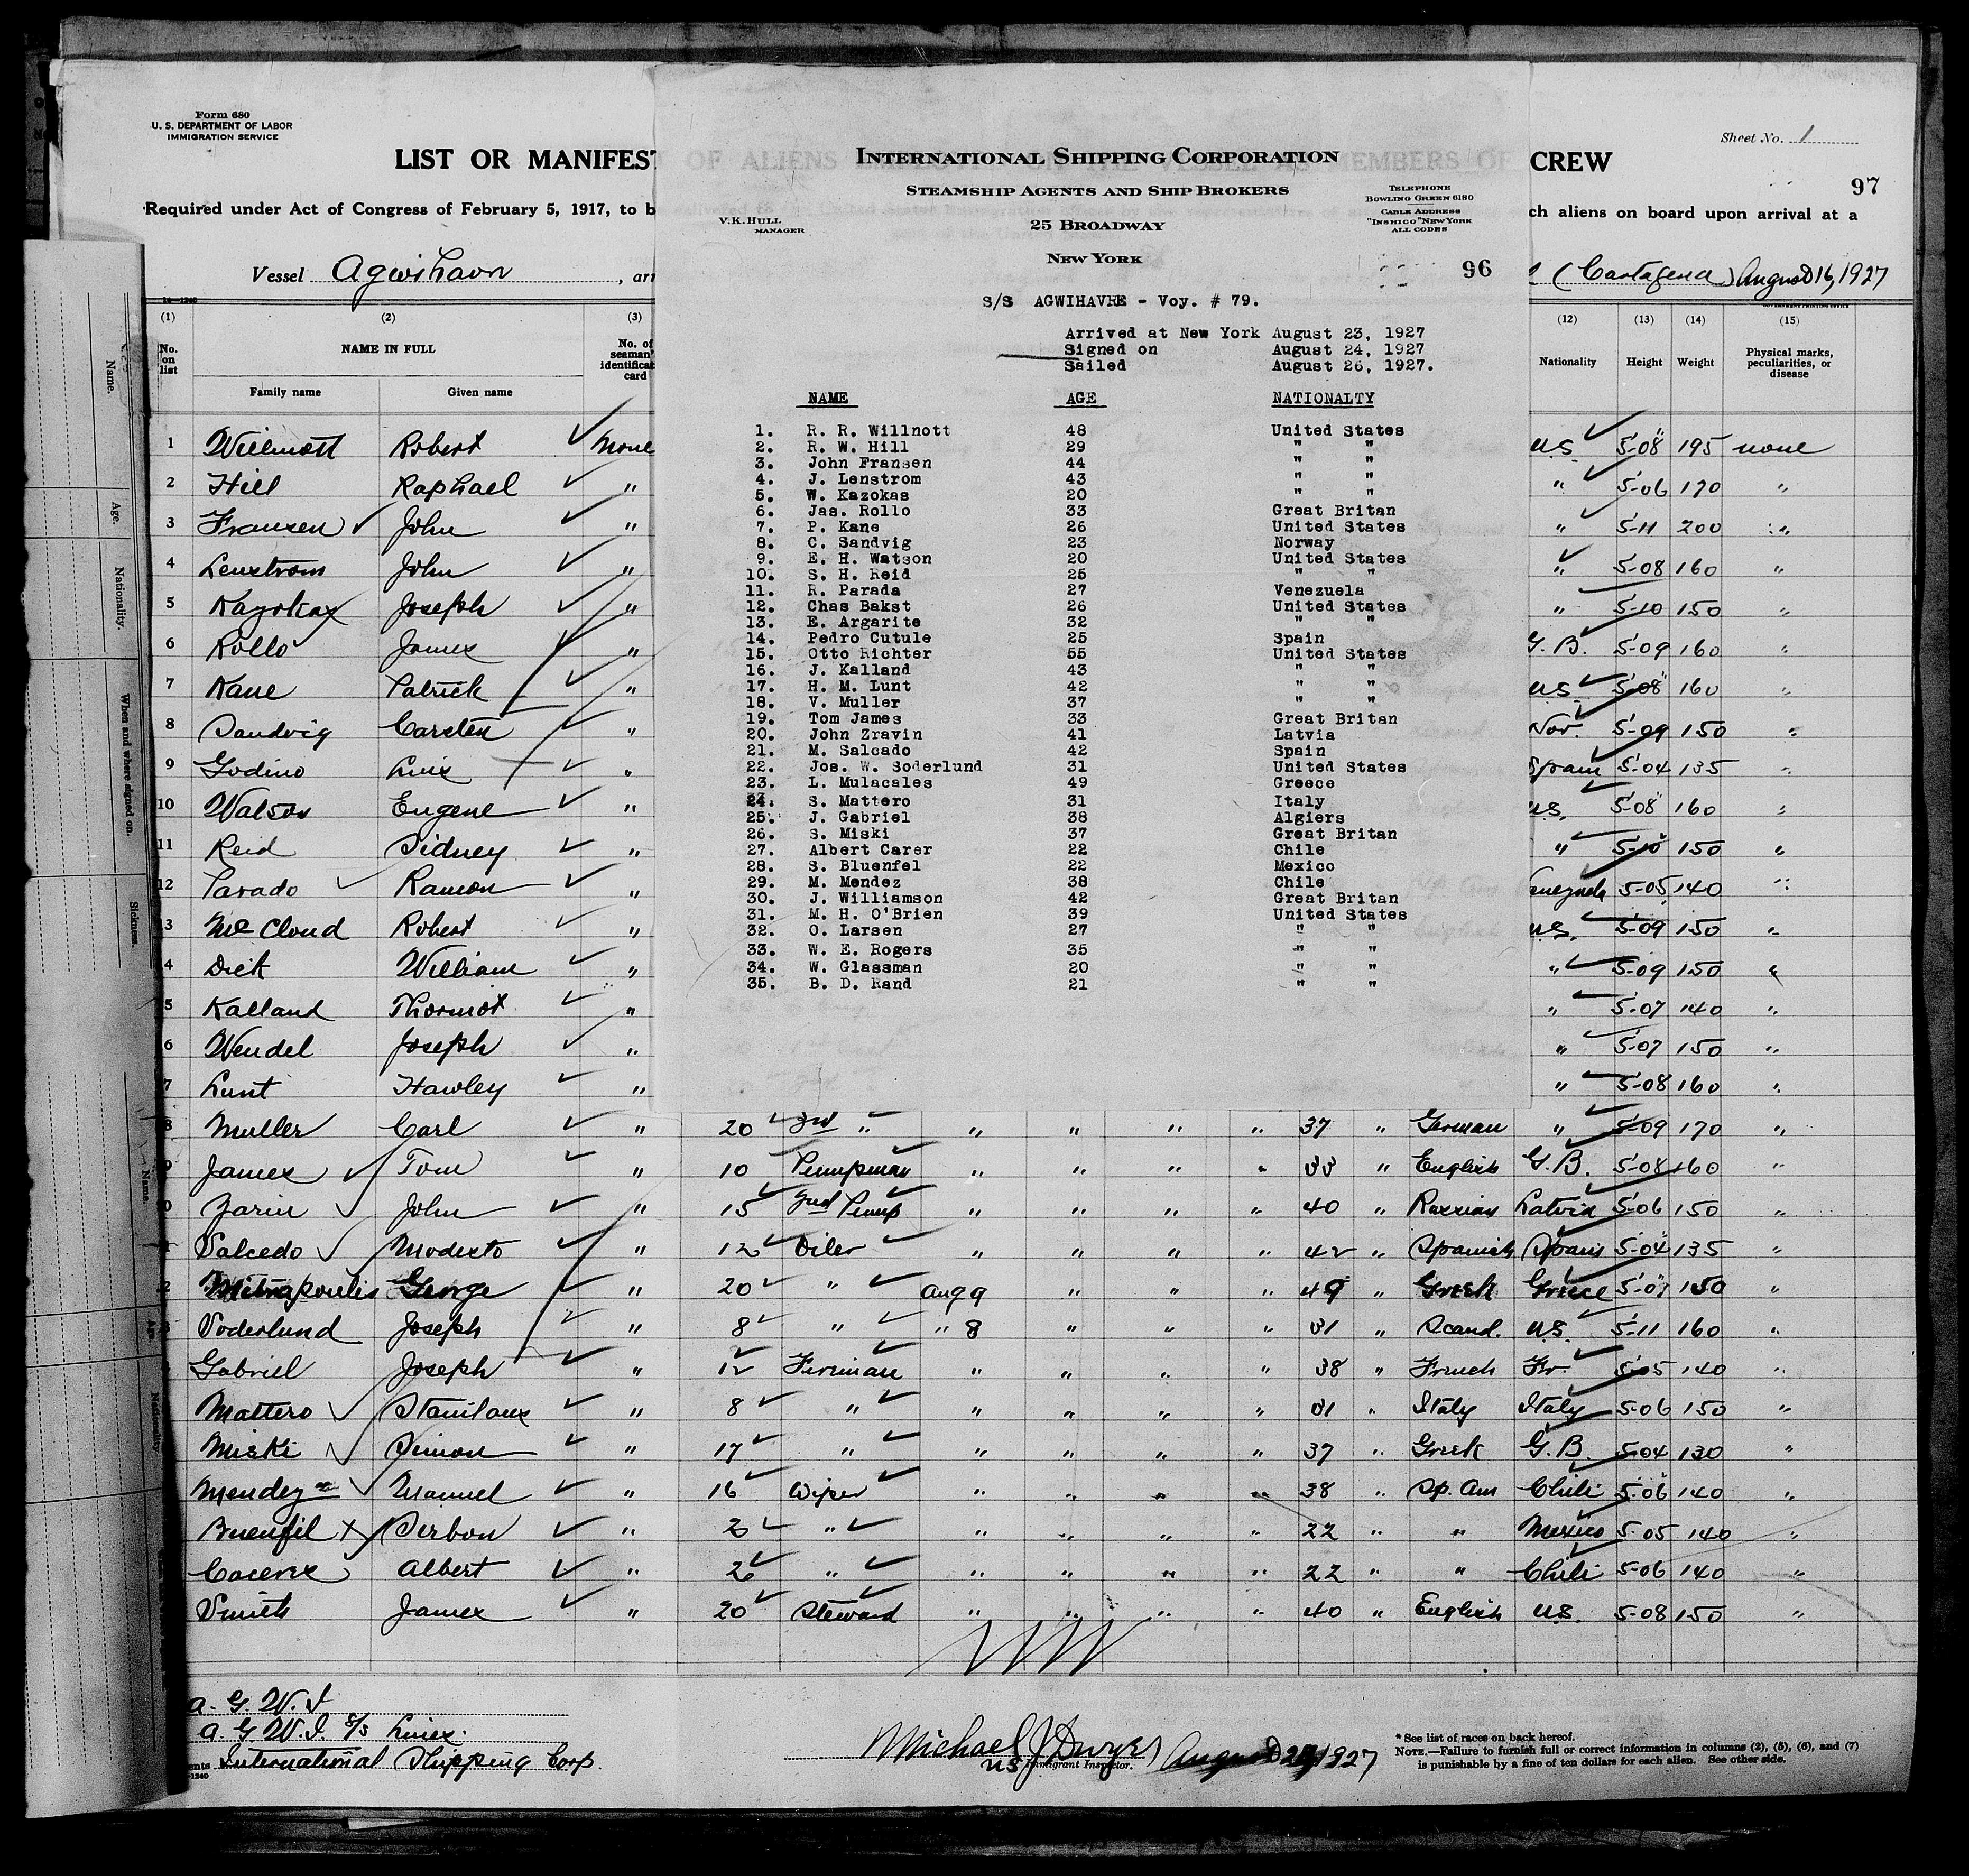 Form 680
U. S. DEPARTMENT OF LABOR
IMMIGRATION SERVICE
Sheet No. 1
LIST OR MANIFEST OF ALIENS EMPLOYED ON THE VESSEL AS MEMBERS OF CREW
97
Required under Act of Congress of February 5, 1917, to b
ch aliens on board upon arrival at a
Vessel Agwihavn , arr
(Cartagena) August 16, 1927
INTERNATIONAL SHIPPING CORPORATION
STEAMSHIP AGENTS AND SHIP BROKERS
25 BROADWAY
NEW YORK
V. K. HULL
MANAGER
TELEPHONE
BOWLING GREEN 6180
CABLE ADDRESS
"INSHICO" NEW YORK
ALL CODES
96
S/S AGWIHAVRE - Voy. # 79.
Arrived at New York August 23, 1927
Signed on August 24, 1927
Sailed August 26, 1927.
NAME AGE NATIONALTY
1. R. R. Willnott 48 United States
2. R. W. Hill 29 " "
3. John Fransen 44 " "
4. J. Lenstrom 43 " "
5. W. Kazokas 20 " "
6. Jas. Rollo 33 Great Britan
7. P. Kane 26 United States
8. C. Sandvig 23 Norway
9. E. H. Watson 20 United States
10. S. H. Reid 25 " "
11. R. Parada 27 Venezuela
12. Chas Bakst 26 United States
13. E. Argarite 32 " "
14. Pedro Cutule 25 Spain
15. Otto Richter 55 United States
16. J. Kalland 43 " "
17. H. M. Lunt 42 " "
18. V. Muller 37 " "
19. Tom James 33 Great Britan
20. John Zravin 41 Latvia
21. M. Salcado 42 Spain
22. Jos. W. Soderlund 31 United States
23. L. Mulacales 49 Greece
24. S. Mattero 31 Italy
25. J. Gabriel 38 Algiers
26. S. Miski 37 Great Britan
27. Albert Carer 22 Chile
28. S. Bluenfel 22 Mexico
29. M. Mendez 38 Chile
30. J. Williamson 42 Great Britan
31. M. H. O'Brien 39 United States
32. O. Larsen 27 " "
33. W. E. Rogers 35 " "
34. W. Glassman 20 " "
35. B. D. Rand 21 " "
(1) (2) (3) (12) (13) (14) (15)
No. on list
NAME IN FULL
Family name Given name
No. of seaman's identificat card
Nationality Height Weight Physical marks, peculiarities, or disease
1 Willmott Robert None U.S. 5'-08" 195 none
2 Hill Raphael " " 5-06 170 "
3 Fransen John " " 5-11 200 "
4 Lenstrom John " " 5-08 160 "
5 Kazokas Joseph " " 5-10 150 "
6 Rollo James " G. B. 5-09 160 "
7 Kane Patrick " U.S. 5-08 160 "
8 Sandvig Carsten " Nor. 5-09 150 "
9 Godino Luis " Spain 5-04 135 "
10 Watson Eugene " U.S. 5-08 160 "
11 Reid Sidney " " 5-10 150 "
12 Parado Ramon " Venezuela 5-05 140 "
3 McCloud Robert " U.S. 5-09 150 "
4 Dick William " " 5-09 150 "
5 Kalland Thormot " " 5-07 140 "
6 Wendel Joseph " " 5-07 150 "
7 Lunt Hawley " " 5-08 160 "
8 Muller Carl " 20 3rd " " " " " 37 " German " 5-09 170 "
9 James Tom " 10 Pumpman " " " " 33 " English G.B. 5-08 160 "
0 Zarin John " 15 2nd Pump " " " " 40 " Russian Latvia 5-06 150 "
1 Salcedo Modesto " 12 Oiler " " " " 42 " Spanish Spain 5-04 135 "
2 Mitrapoulis George " 20 " Aug 9 " " " 49 " Greek Greece 5-07 150 "
3 Soderlund Joseph " 8 " " 8 " " " 31 " Scand. U.S. 5-11 160 "
Gabriel Joseph " 12 Fireman " " " " 38 " French Fr. 5-05 140 "
Mattero Stanilaus " 8 " " " " " 31 " Italy Italy 5-06 150 "
Miski Simon " 17 " " " " " 37 " Greek G.B. 5-04 130 "
Mendez Manuel " 16 Wiper " " " " 38 " Sp. Am Chili 5-06 140 "
Buenfil Serbon " 2 " " " " " 22 " " Mexico 5-05 140 "
Caceres Albert " 2 " " " " " 22 " " Chili 5-06 140 "
Smith James " 20 Steward " " " " 40 " English U.S. 5-08 150 "
A. G. W. I
A. G. W. I. S/S Lines.
ents International Shipping Corp.
14-1240
Michael J Dwyer August 1927
US Immigrant Inspector.
* See list of races on back hereof.
NOTE.—Failure to furnish full or correct information in columns (2), (5), (6), and (7)
is punishable by a fine of ten dollars for each alien. See other side.
Name.
Age.
Nationality.
When and where signed on.
Sickness.
Name.
Age.
Nationality